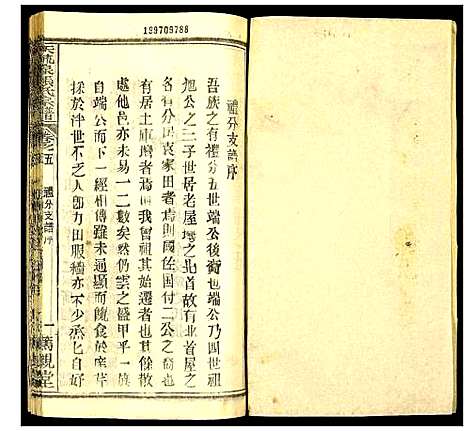 199709788
禮分支譜序
吾族之有禮分五世端公後裔也端公乃四世祖
旭公之三子世居老屋塆之北首故有北首屋之
分有分回袁家田者焉則國佐國付二公之裔也
有居土庫磨者焉則我曾祖其始遷者也其餘散
處他邑亦未易一二數矣然仍雲之盛甲乎一族
自端公而下一經相傳雖未通顯而餼食於庠
採於泮世不乏人卽力田服穡亦不少烝乜自好
張氏宗譜
卷之五
禮分支譜序
一
親堂